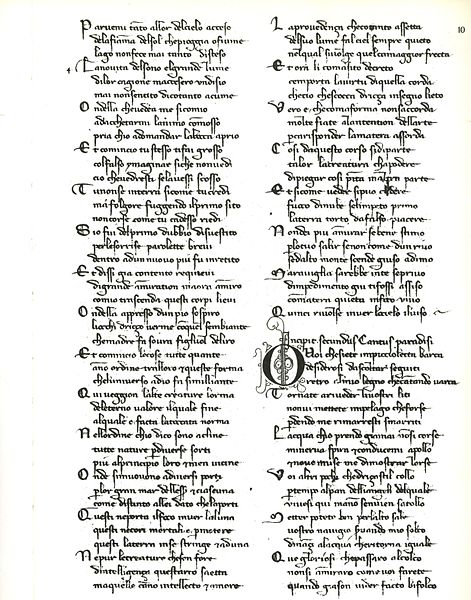 Parvemi tãto allor delcielo acceso
delafiãma delsol chepioggia ofiume
lago nonfece mai tanto disteso
Lanovita delsono elgrande lume
dilor cagione maccesero undisio
mai nonsentito dicotanto acume
Ondella chevedea me sicomio
adacchetarmi lanimo cõmosso
pria chio adomandar labocca aprio
Et comincio tu stesso tifai grosso
colfalso ymaginar siche nonvedi
cio chevedresti selavessi scosso
Tu nonse interra sicome tucredi
ma folgore fuggendo ilproprio sito
non corse come tu cadesso riedi
Sio fui delprimo dubbio disvestito
perlesorrise parolette brevi
dentro adun nuovo piu fu inretito
Et dissi gia contento requievi
digrande amiration maora amiro
comio trascenda questi corpi lievi
Ondella appresso dun pio sospiro
liocchi driçço vermé conquel sembiante
chemadre fa sovra figliuol deliro
Et comincio lecose tutte quante
ãno ordine tralloro et questo forma
cheluniverso adio fa similliante
Qui veggion lalte creature lorma
deleterno valore ilquale fine
alquale e fatta latoccata norma
Nellordine chio dico sono acline
tutte nature p diverse sorti
piu alprincipio loro et men vicine
Onde simuovono adiversi porti
p lor gran mar dellesse et ciascuna
come distinto allei dato cheloporti
Questi neporta ilfoco inver laluna
questi necor mortali e pmotore
questi laterra inse stringe et aduna
Nepur lecreature chesen fore
dintelligença questarco saetta
maquelle cãno intellecto et amore
Laprovedença checotanto assetta
delsuo lume fal ciel sempre quieto
nelqual sivolge quelcamaggior fretta
Et ora li comasito decreto
cemporta lavirtu diquella corda
checio chescocca driçça insegno lieto
Vero e checomaforma nonsaccorda
molte fiate alantention dellarte
perarisponder lamatera assorda
Cosi daquesto corso sidiparte
talor lacreatura cha podere
dipiegar cosi pinta inaltra parte
Et sicome veder sipuo cadere
fuoco dinube selimpeto primo
laterra torto dafalso piacere
Non dei piu amirar se bene stimo
lo tuo salir senon come dunrivo
sedalto monte scende giuso adimo
Maraviglia sarebbe inte seprivo
dimpedimento giu tifossi assiso
comaterra quieta infoco vivo
Quinci rivolse inver locielo ilviso
Incipit secundus Cantus paradisi
O Voi chesiete impiccioletta barca
desiderosi dascoltar seguiti
retro almio legno checantando varca
Tornate ariveder livostri liti
nonvi mettete impelago cheforse
pdendo me rimarresti smarriti
Lacqua chio prendo giamai nõsi corse
minerva spira et conducemi apollo
et nove muse me dimostrar lorse
Voi altri pochi chedriççastil collo
pertempo alpan dellangeli delquale
vivesi qui manõ senvien satollo
Metter potete ben perlalto sale
vostro navigio servando mio solco
dinãçi alacqua cheritorna iguale
Que gloriosi chepassaro alcolco
nonsi amiraro come voi farete
quando giason vider facto bifolco
10